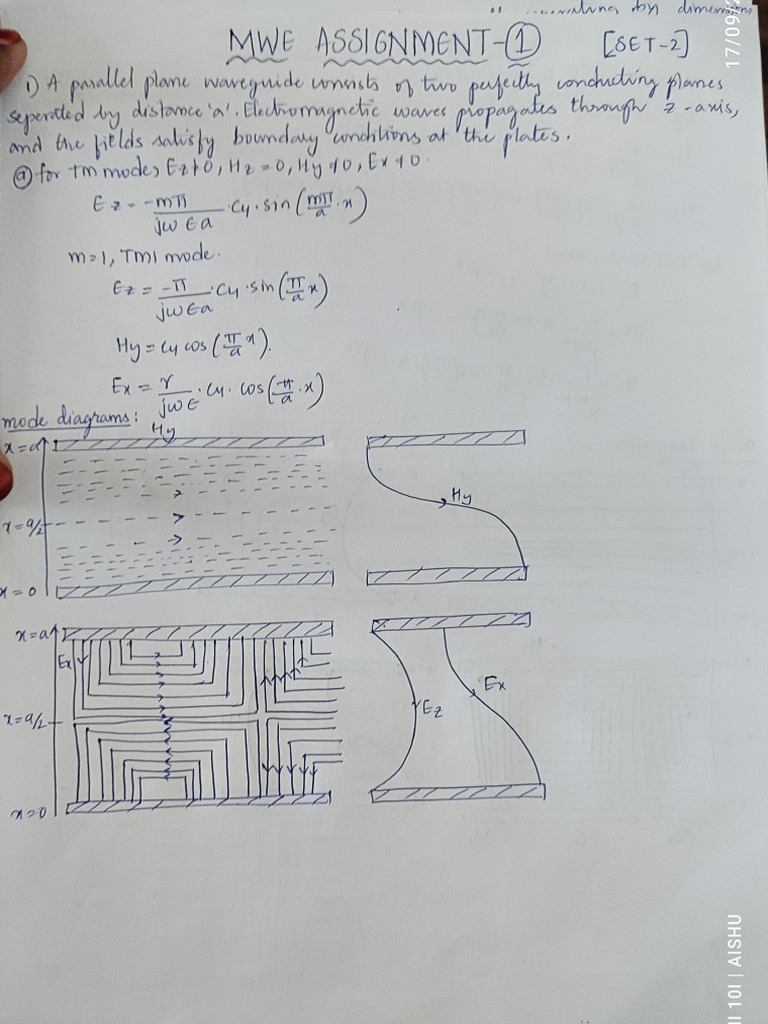 by dimensions
MWE ASSIGNMENT-1 [SET-2]
1) A parallel plane waveguide consists of two perfectly conducting planes
seperated by distance 'a'. Electromagnetic waves propagates through z-axis,
and the fields satisfy boundary conditions at the plates.
a) for TM modes, Ez≠0, Hz=0, Hy≠0, Ex≠0.
Ez = -mπ/jωεa · C4 · sin(mπ/a · x)
m=1, TM1 mode.
Ez = -π/jωεa · C4 · sin(π/a x)
Hy = C4 cos(π/a x).
Ex = γ/jωε · C4 · cos(π/a · x)
mode diagrams:
Hy
x=a
Hy
x=a/2
x=0
x=a
Ex
Ez
Ex
x=a/2
x=0
17/09/2
10I | AISHU